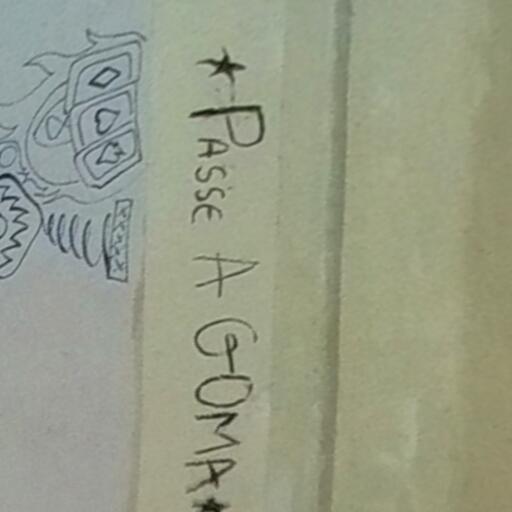 ★ PASSE A GOMA ★